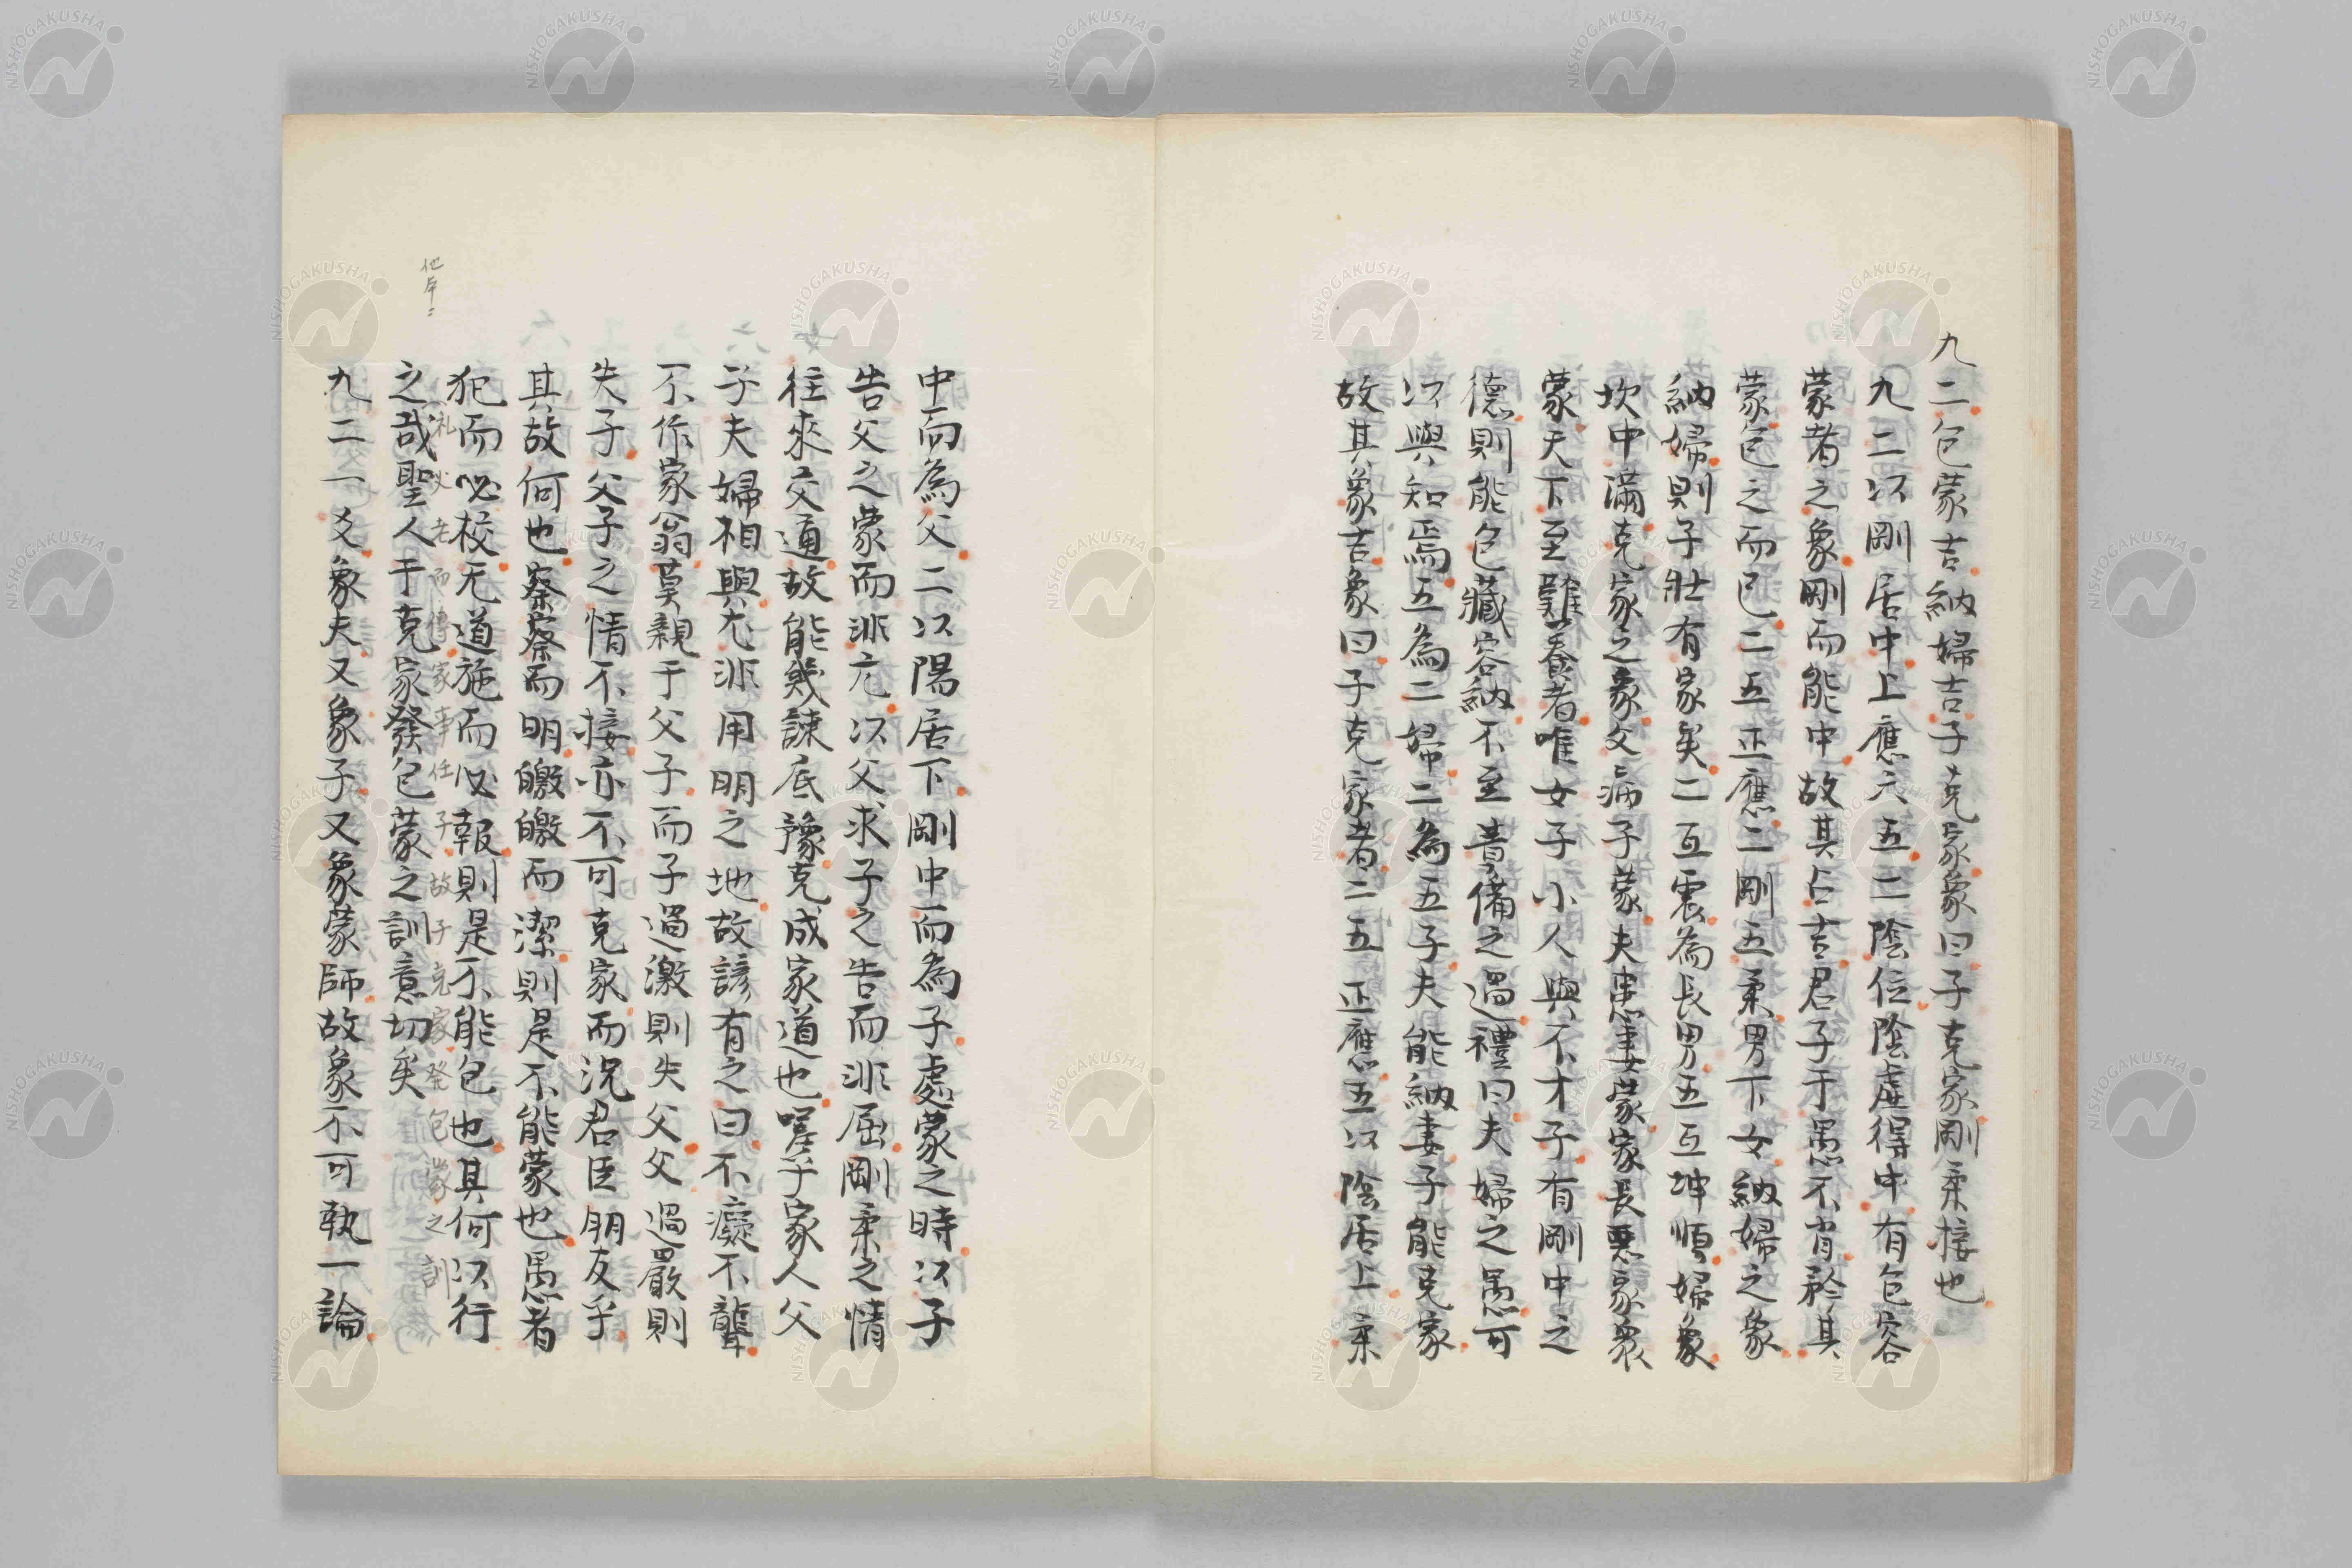 九二包蒙吉納婦吉子克家象曰子克家剛柔接也
九二以剛居中上應六五二陰位陰虛得中有包容
蒙者之象剛而能中故其占吉君子于愚不肖矜其
蒙包之而已二五正應二剛五柔男下女納婦之象
納婦則子壯有家矣二互震為長男五互坤順婦象
坎中滿克家之象父病子蒙夫患妻蒙家長惡家衆
蒙天下至難養者唯女子小人與不才子有剛中之
德則能包藏容納不至責備之過禮曰夫婦之愚可
以與知焉五為二婦二為五子夫能納妻子能克家
故其象吉象曰子克家者二五正應五以陰居上柔
中而為父二以陽居下剛中而為子處蒙之時以子
告父之蒙而非亢以父求子之告而非屈剛柔之情
往來交通故能幾諫底豫克成家道也嗟乎家人父
子夫婦相與尤非用明之地故諺有之曰不癡不聾
不作家翁莫親于父子而子過激則失父父過嚴則
失子父子之情不接亦不可克家而況君臣朋友乎
其故何也察察而明皦皦而潔則是不能蒙也愚者
犯而必校无道施而必報則是不能包也其何以行
礼必老而傳家事任子故子克家發包蒙之訓
他本ニ
之哉聖人于克家發包蒙之訓意切矣
九二一爻象夫又象子又象蒙師故象不可執一論
NISHOGAKUSHA